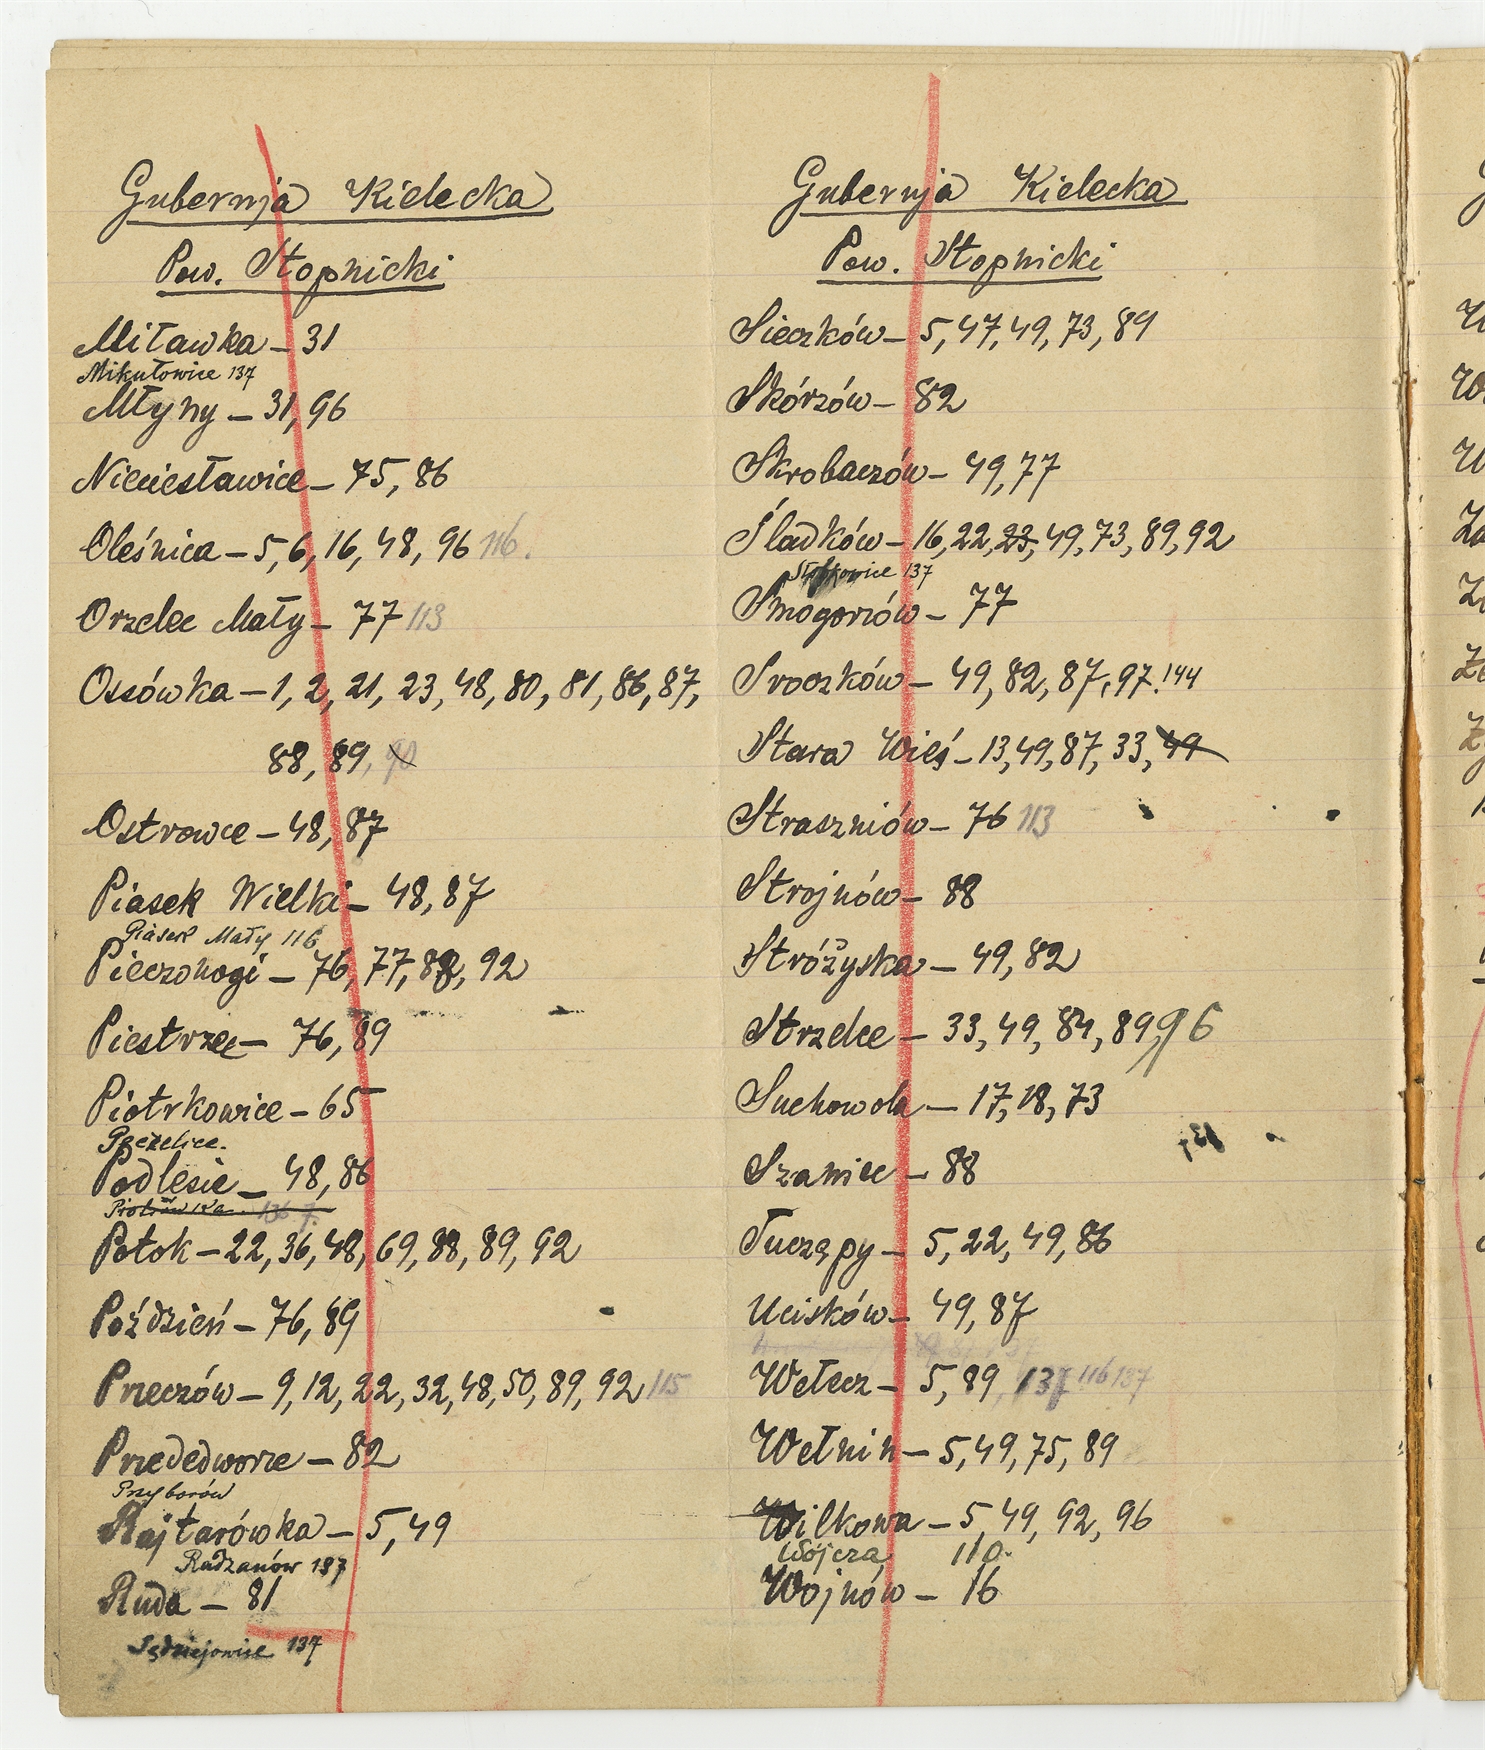 Gubernja Kielecka
Pow. Stopnicki
Miławka – 31
Mikułowice 137
Młyny – 31, 96
Nieciesławice – 75, 86
Oleśnica – 5, 6, 16, 48, 96 116.
Orzelec Mały – 77 113
Ossówka – 1, 2, 21, 23, 48, 80, 81, 86, 87,
88, 89, 90
Ostrowce – 48, 87
Piasek Wielki – 48, 87
Piasek Mały 116
Pieczonogi – 76, 77, 88, 92
Piestrzec – 76, 89
Piotrkowice – 65
Pęczelice.
Podlesie – 48, 86
136 7.
Potok – 22, 36, 48, 69, 88, 89, 92
Poździeń – 76, 89
Przeczów – 9, 12, 22, 32, 48, 50, 89, 92 115
Przededworze – 82
Przyborów
Rajtarówka – 5, 49
Radzanów 137
Ruda – 81
Sędziejowice 137
Gubernja Kielecka
Pow. Stopnicki
Sieczków – 5, 47, 49, 73, 89
Skórzów – 82
Skrobaczów – 49, 77
Śladków – 16, 22, 23, 49, 73, 89, 92
137
Smogorzów – 77
Sroczków – 49, 82, 87, 97. 144
Stara Wieś – 13, 49, 87, 33, 49
Straszniów – 76 113
Strojnów – 88
Stróżyska – 49, 82
Strzelce – 33, 49, 84, 89, 96
Suchowola – 17, 18, 73
Szaniec – 88
Tuczępy – 5, 22, 49, 86
Ucisków – 49, 87
Wełecz – 5, 89 137 116 137
Wełnin – 5, 49, 75, 89
Wilkowa – 5, 49, 92, 96
Wójcza 110.
Wojnów – 16